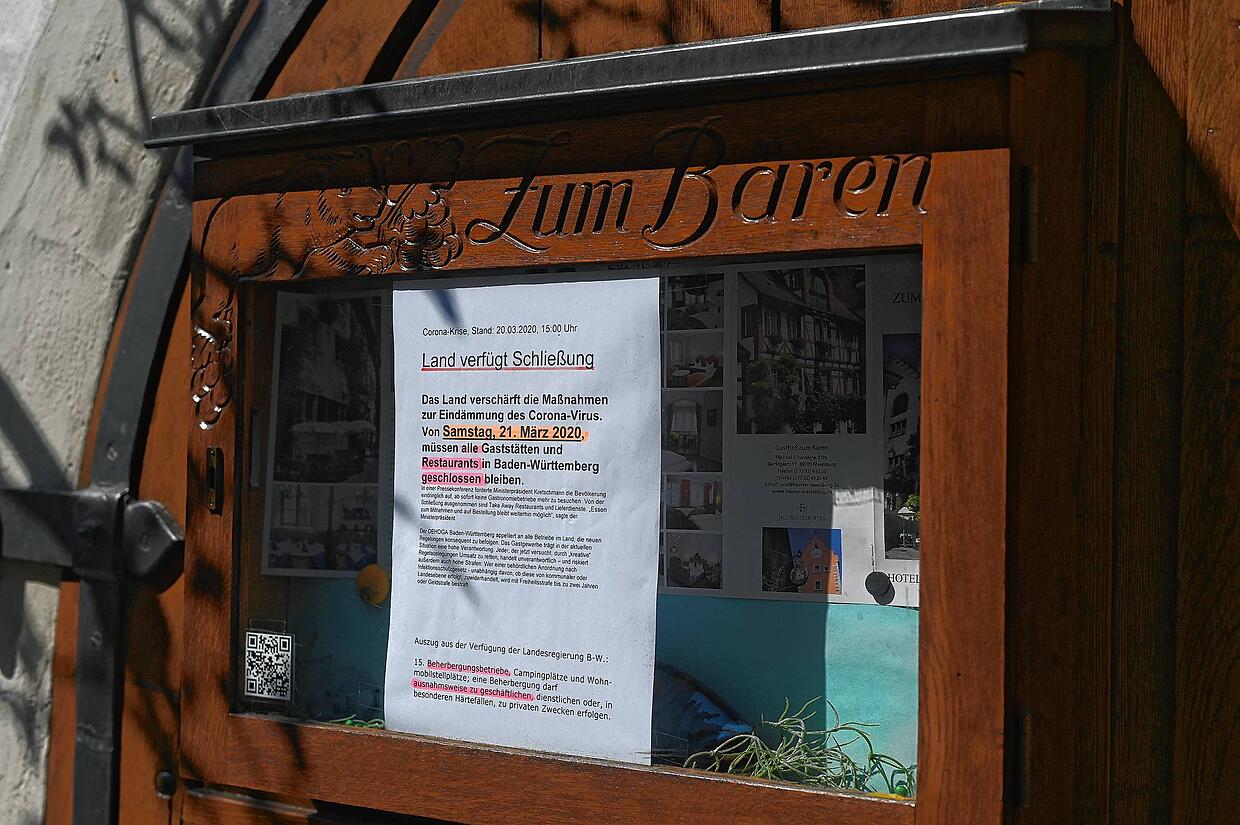 Zum Bären
Corona-Krise, Stand: 20.03.2020, 15:00 Uhr
Land verfügt Schließung
Das Land verschärft die Maßnahmen
zur Eindämmung des Corona-Virus.
Von Samstag, 21. März 2020,
müssen alle Gaststätten und
Restaurants in Baden-Württemberg
geschlossen bleiben.
In einer Pressekonferenz forderte Ministerpräsident Kretschmann die Bevölkerung
eindringlich auf, ab sofort keine Gastronomiebetriebe mehr zu besuchen. Von der
Schließung ausgenommen sind Take Away Restaurants und Lieferdienste. „Essen
zum Mitnehmen und auf Bestellung bleibt weiterhin möglich", sagte der
Ministerpräsident.
Der DEHOGA Baden-Württemberg appelliert an alle Betriebe im Land, die neuen
Regelungen konsequent zu befolgen. Das Gastgewerbe trägt in der aktuellen
Situation eine hohe Verantwortung. Jeder, der jetzt versucht, durch „kreative"
Regelauslegungen Umsatz zu retten, handelt unverantwortlich – und riskiert
außerdem auch hohe Strafen: Wer einer behördlichen Anordnung nach
Infektionsschutzgesetz - unabhängig davon, ob diese von kommunaler oder
Landesebene erfolgt, zuwiderhandelt, wird mit Freiheitsstrafe bis zu zwei Jahren
oder Geldstrafe bestraft.
Auszug aus der Verfügung der Landesregierung B-W.:
15. Beherbergungsbetriebe, Campingplätze und Wohn-
mobilstellplätze; eine Beherbergung darf
ausnahmsweise zu geschäftlichen, dienstlichen oder, in
besonderen Härtefällen, zu privaten Zwecken erfolgen.
ZUM
Gasthof zum Bären
Marktplatz 11 · 88709 Meersburg
HOTEL